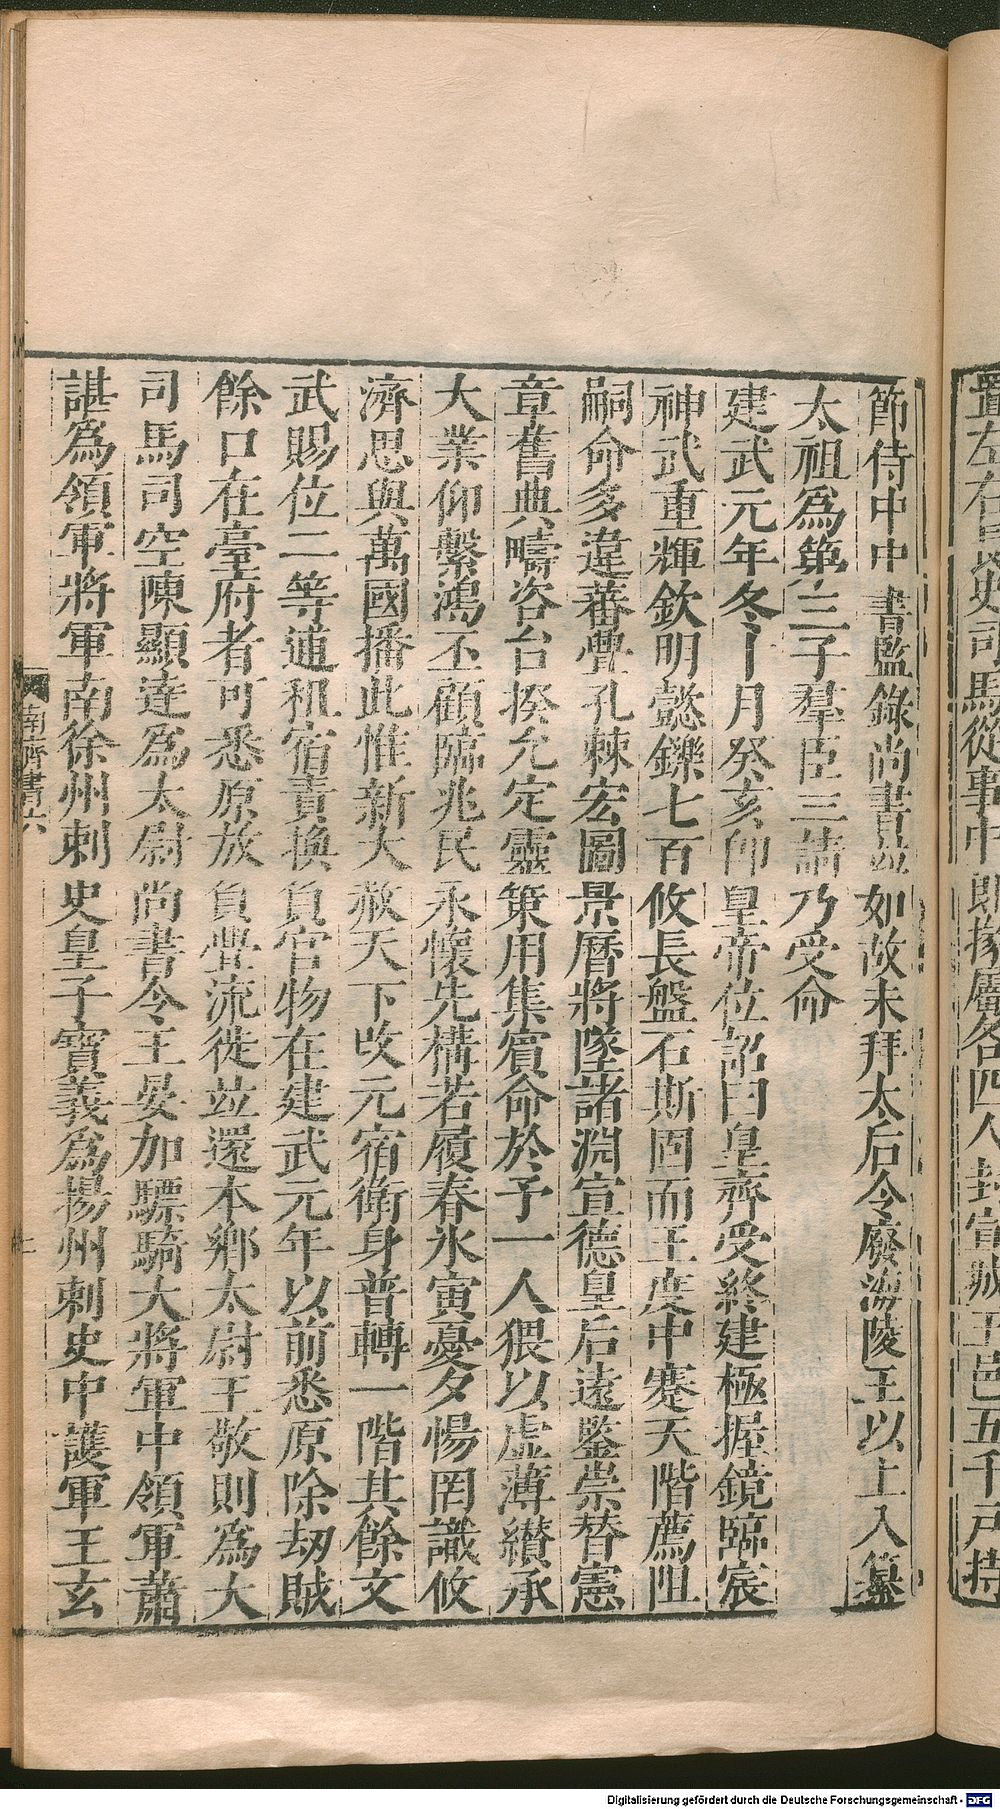 置左右長史司馬從事中郎掾屬各四人封宣城王邑五千戶持
節侍中中書監錄尚書並如故未拜太后令廢海陵王以上入纂
太祖爲第三子羣臣三請乃受命
建武元年冬十月癸亥卽皇帝位詔曰皇齊受終建極握鏡臨宸
神武重輝欽明懿鑠七百攸長盤石斯固而王度中蹇天階薦阻
嗣命多違蕃釁孔棘宏圖景曆將墜諸淵宣德皇后遠鑒崇替憲
章舊典疇咨台揆允定靈策用集寶命於予一人猥以虛薄纘承
大業仰繫鴻丕顧臨兆民永懷先構若履春氷寅憂夕惕罔識攸
濟思與萬國播此惟新大赦天下改元宿衛身普轉一階其餘文
武賜位二等逋租宿責換負官物在建武元年以前悉原除劫賊
餘口在臺府者可悉原放負釁流徙竝還本鄉太尉王敬則爲大
司馬司空陳顯達爲太尉尚書令王晏加驃騎大將軍中領軍蕭
諶爲領軍將軍南徐州刺史皇子寶義爲揚州刺史中護軍王玄
南齊書六
Digitalisierung gefördert durch die Deutsche Forschungsgemeinschaft - DFG